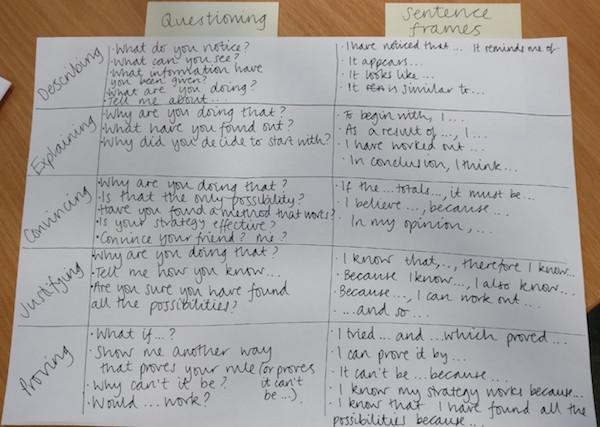 Questioning
Sentence
frames
Describing
· What do you notice?
· What can you see?
· What information have
you been given?
· What are you doing?
· Tell me about...
· I have noticed that... It reminds me of
· It appears...
· It looks like...
· It is similar to...
Explaining
· Why are you doing that?
· What have you found out?
· Why did you decide to start with?
· To begin with, I...
· As a result of..., I...
· I have worked out...
· In conclusion, I think...
Convincing
· Why are you doing that?
· Is that the only possibility?
· Have you found a method that works?
· Is your strategy effective?
· Convince your friend? me?
· If the...totals..., it must be...
· I believe..., because...
In my opinion,...
Justifying
Why are you doing that?
· Tell me how you know...
· Are you sure you have found
all the possibilities?
· I know that,.., therefore I know...
· Because I know..., I also know...
· Because..., I can work out...
· ...and so...
Proving
· What if...?
· Show me another way
that proves your rule (or proves
it can't
be...)
· Why can't it be?
· Would... work?
· I tried... and ...which proved...
· I can prove it by...
· It can't be ...because...
· I know my strategy works because...
· I know that I have found all the
possibilities because...